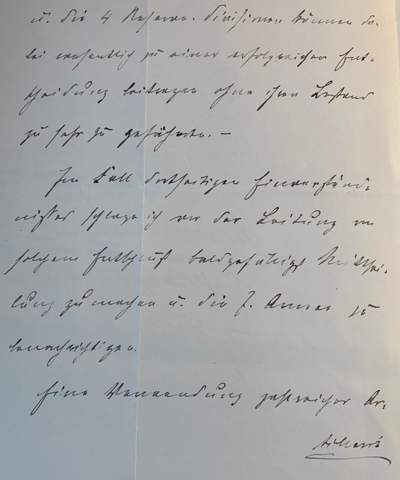 u. die 4 Reserve-Divisionen können da-
bei wesentlich zu einer erfolgreichen Ent-
scheidung beitragen ohne ihren Bestand
zu sehr zu gefährden. –
Im Fall dortseitigen Einverständ-
nisses schlage ich vor der Leitung von
solchem Entschluß baldgefälligst Mitthei-
lung zu machen u. die 7. Armee zu
benachrichtigen.
Eine Verwendung zahlreicher Ar-
tillerie